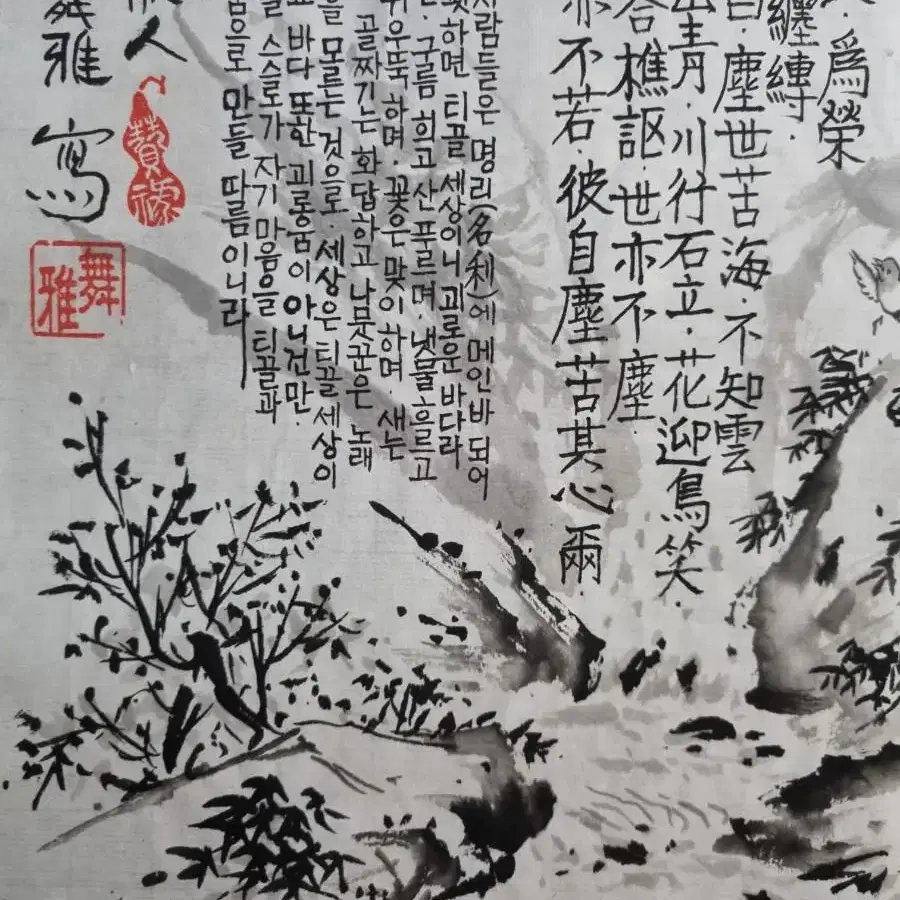 爲榮
纏縛·
曰·塵世苦海·不知雲
山靑·川行石立·花迎鳥笑·
答樵謳·世亦不塵·
亦不若·彼自塵苦其心爾·
사람들은 명리(名利)에 메인바 되어
핏하면 티끌 세상이니 괴로운 바다라
구름 희고 산 푸르며 냇물 흐르고
우뚝하며· 꽃은 맞이하며 새는
골짜기는 화답하고 나뭇꾼은 노래
을 모르는 것으로· 세상은 티끌 세상이
바다 또한 괴롱움이 아니건만·
스스로가 자기 마음을 티끌과
음으로 만들 따름이니라
人
雅寫
舞雅